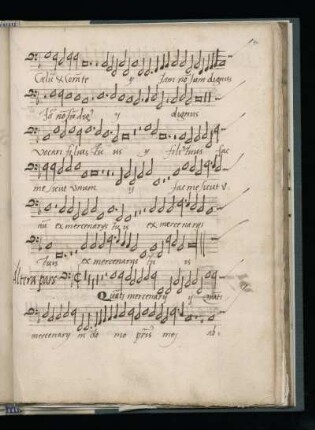 Celū & Corā te y Jam nō sum dignus
Jā nō sū dig⁹ y dignus
vocari filius tuus y filius tuus fac
me sicut unum y fac me sicut u
nū ex mercenarijs tuis ex mercenarijs
tuis ex mercenarijs tuis
Altera pars
Quāti mercenary y
mercenarij in domo pr̄is mej ab-